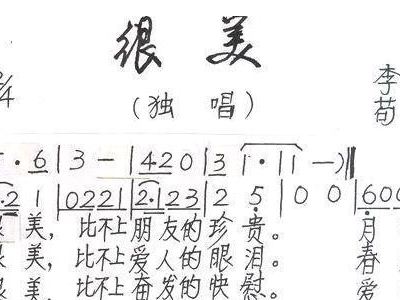 很 美
2/4
(独 唱)
李
荀
· 6 | 3 — | 4 2 0 | 3 | 1 · | 1 — ) ‖
· 2 1 | 0 2 2 2 1 | 2 · 1 2 3 | 2 5 | 0 0 | 6 0 0
美, 比不上朋友的珍 贵。 月
美, 比不上爱人的眼 泪。 春
美, 比不上奋发的快 慰。 爱